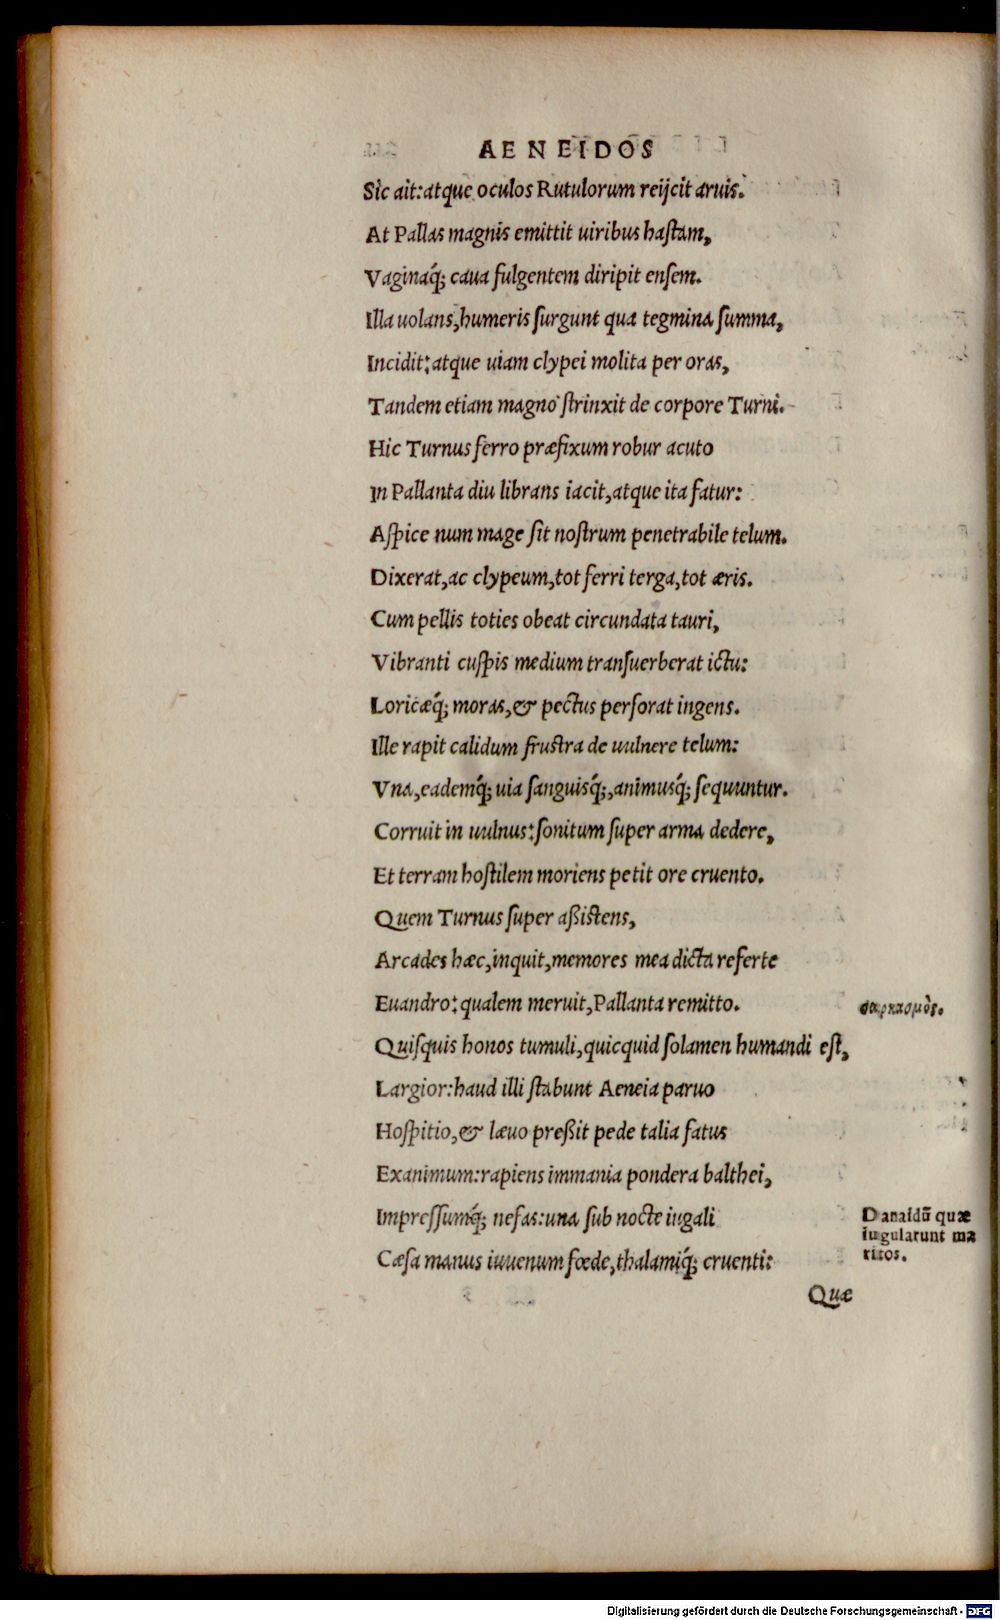 AENEIDOS
Sic ait: atque oculos Rutulorum reijcit aruis.
At Pallas magnis emittit uiribus haſtam,
Vaginaq́; caua fulgentem diripit enſem.
Illa uolans, humeris ſurgunt qua tegmina ſumma,
Incidit: atque uiam clypei molita per oras,
Tandem etiam magno ſtrinxit de corpore Turni.
Hic Turnus ferro præfixum robur acuto
In Pallanta diu librans iacit, atque ita fatur:
Aſpice num mage ſit noſtrum penetrabile telum.
Dixerat, ac clypeum, tot ferri terga, tot æris.
Cum pellis toties obeat circundata tauri,
Vibranti cuſpis medium tranſuerberat ictu:
Loricæq́; moras, & pectus perforat ingens.
Ille rapit calidum fruſtra de uulnere telum:
Vna, eademq́; uia ſanguisq́;, animusq́; ſequuntur.
Corruit in uulnus: ſonitum ſuper arma dedere,
Et terram hoſtilem moriens petit ore cruento.
Quem Turnus ſuper aßiſtens,
Arcades hæc, inquit, memores mea dicta referte
Euandro: qualem meruit, Pallanta remitto.
σαρκασμὸς.
Quiſquis honos tumuli, quicquid ſolamen humandi eſt,
Largior: haud illi ſtabunt Aeneia paruo
Hoſpitio, & læuo preßit pede talia fatus
Exanimum: rapiens immania pondera balthei,
Impreſſumq́; nefas: una ſub nocte iugali
Cæſa manus iuuenum fœde, thalamiq́; cruenti:
Danaidũ quæ
iugularunt ma
ritos.
Quæ
Digitalisierung gefördert durch die Deutsche Forschungsgemeinschaft - DFG